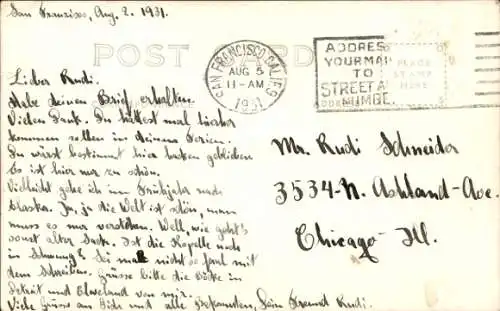 San Franzisco, Aug. 2. 1931.
POST CARD
SAN FRANCISCO, CALIF.
AUG 5
11-AM
1931
ADDRESS
YOUR MAIL
TO
STREET A
NUMBE
PLACE
STAMP
HERE
Lieber Rudi.
Habe deinen Brief erhalten.
Vielen Dank. Du hättest mal hierher
kommen sollen in deinen Ferien.
Du wärst bestimmt hier hocken geblieben
Es ist hier nur zu schön.
Vielleicht gehe ich im Frühjahr nach
Alaska. Ja, ja die Welt ist schön, man
muss es nur verstehen. Well, wie geht's
sonst alter Sack. Ist die Kapelle noch
in Schwung? Sei mal nicht so faul mit
dem Schreiben. Grüsse bitte die Böcke in
Detroit und Cleveland von mir.
Viele Grüsse an Dich und alle Bekannten, Dein Freund Rudi.
Mr. Rudi Schneider
3534-N. Ashland-Ave
Chicago Ill.